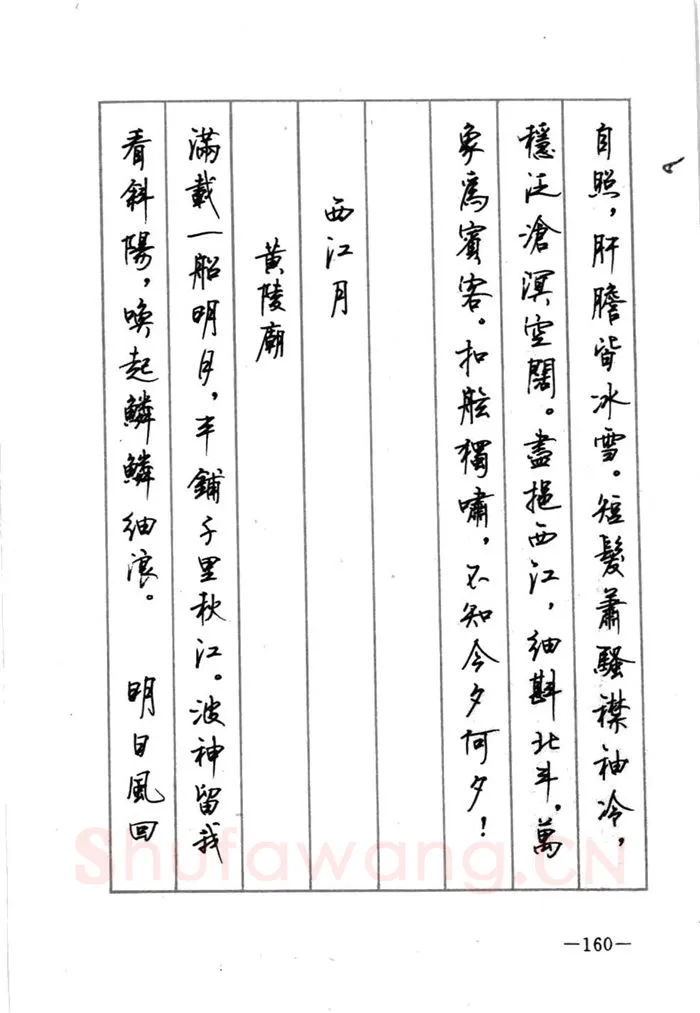 自照，肝膽皆冰雪。短髮蕭騷襟袖冷，
穩泛滄溟空闊。盡挹西江，細斟北斗，萬
象爲賓客。扣舷獨嘯，不知今夕何夕！
西江月
黄陵廟
滿載一船明月，平鋪千里秋江。波神留我
看斜陽，喚起鱗鱗細浪。 明日風回
Shufawang.CN
—160—